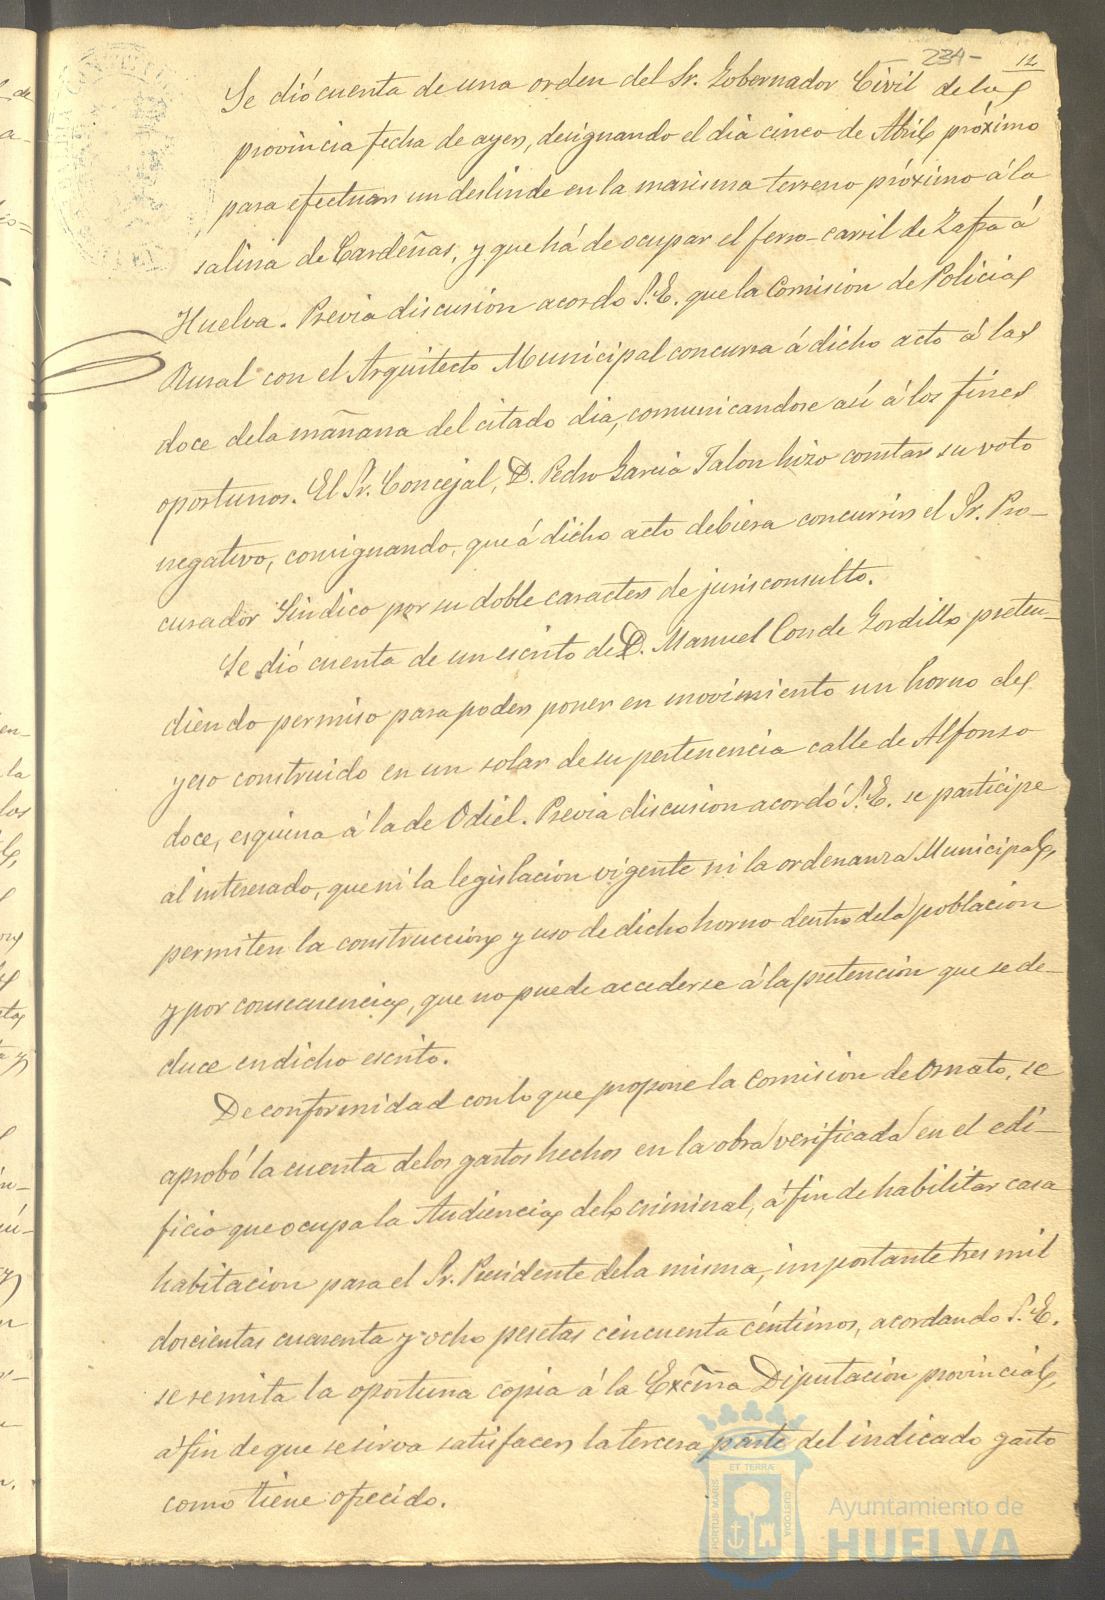 234- 12
Se dió cuenta de una orden del Sr. Gobernador Civil de la
provincia fecha de ayer, designando el dia cinco de Abril próximo
para efectuar un deslinde en la marisma terreno próximo á la
salina de Cardeñas, y que há de ocupar el ferro-carril de Zafra á
Huelva. Previa discusión acordo S.E. que la Comision de Policia
Rural con el Arquitecto Municipal concurra á dicho acto á las
doce de la mañana del citado dia, comunicandose así á los fines
oportunos. El Sr. Concejal, D. Pedro Garcia Jalon hizo constar su voto
negativo, consignando, que á dicho acto debiera concurrir el Sr. Pro-
curador Sindico por su doble caracter de jurisconsulto.
Se dió cuenta de un escrito de D. Manuel Conde Gordillo preten-
diendo permiso para poder poner en movimiento un horno de
yeso construido en un solar de su pertenencia calle de Alfonso
doce, esquina á la de Odiel. Previa discusion acordó S.E. se participe
al interesado, que ni la legislacion vigente ni la ordenanza Municipal,
permiten la construccion y uso de dicho horno dentro de la poblacion
y por consecuencia, que no puede accederse á la pretención que se de-
duce en dicho escrito.
De conformidad con lo que propone la comision de Ornato, se
aprobó la cuenta de los gastos hechos en la obra verificada en el edi-
ficio que ocupa la Audiencia de lo criminal, á fin de habilitar casa
habitacion para el Sr. Presidente de la misma, importante tres mil
doscientas cuarenta y ocho pesetas cincuenta céntimos, acordando S.E.
se remita la oportuna copia á la Excma Diputación provincial,
á fin de que se sirva satisfacer la tercera parte del indicado gasto
como tiene ofrecido.
PORTUS MARIS ET TERRÆ CUSTODIA
Ayuntamiento de
HUELVA